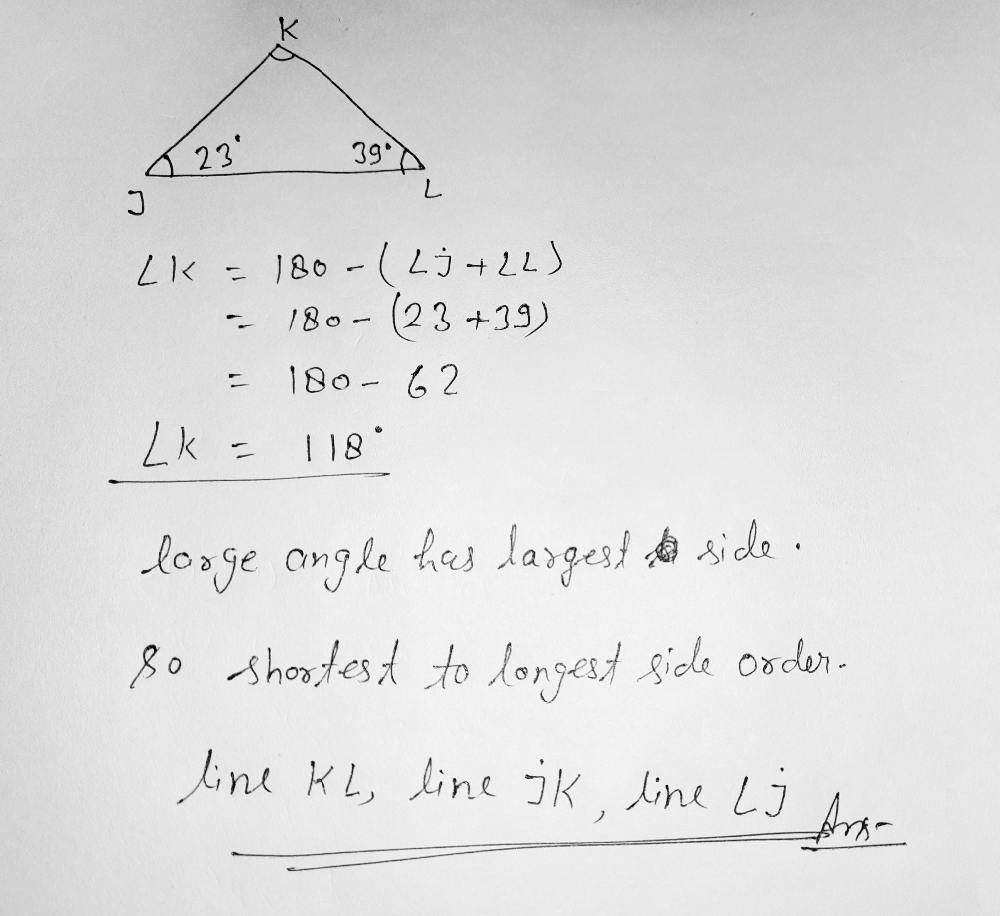 K
23° 39°
J L
∠K = 180 - (∠j + ∠L)
= 180 - (23 + 39)
= 180 - 62
∠k = 118°
large angle has largest side.
So shortest to longest side order.
line KL, line jK, line Lj Ans-